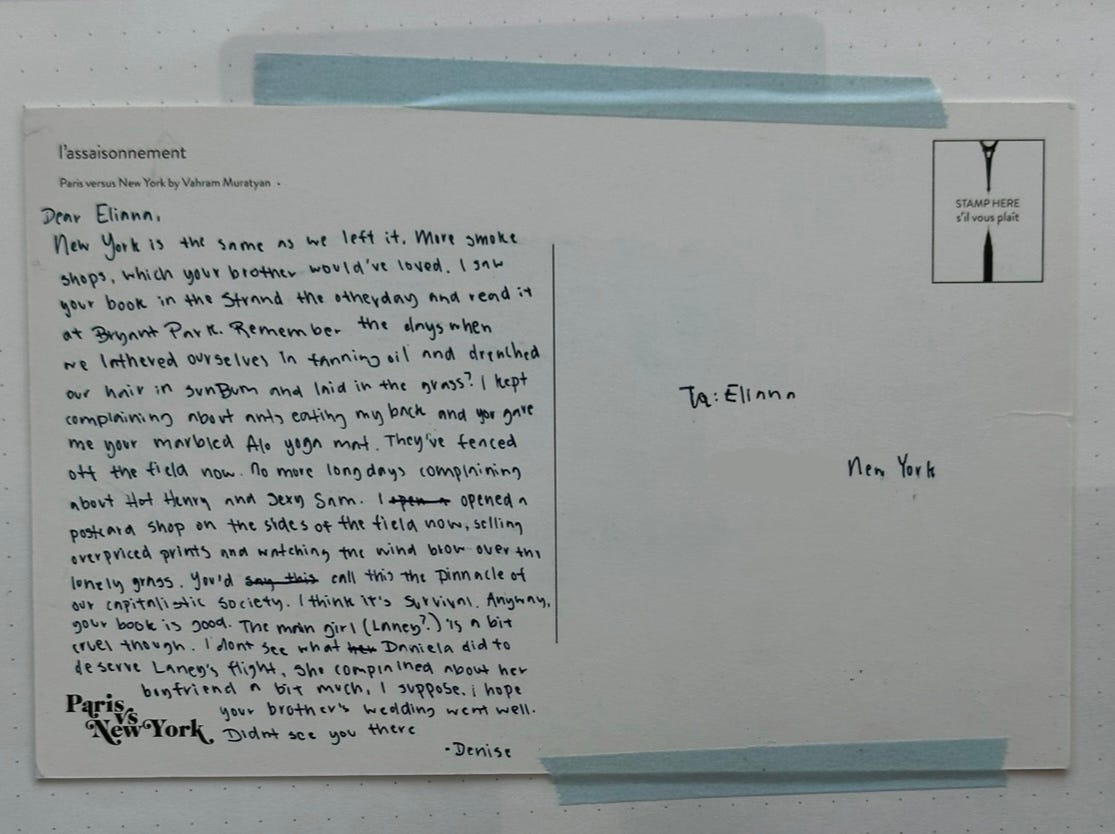 l'assaisonnement
Paris versus New York by Vahram Muratyan
Dear Elianna,
New York is the same as we left it. More smoke
shops, which your brother would've loved. I saw
your book in the Strand the otherday and read it
at Bryant Park. Remember the days when
we lathered ourselves in tanning oil and drenched
our hair in SunBum and laid in the grass? I kept
complaining about ants eating my back and you gave
me your marbled Alo yoga mat. They've fenced
off the field now. No more long days complaining
about Hot Henry and Sexy Sam. I open a opened a
postcard shop on the sides of the field now, selling
overpriced prints and watching the wind blow over the
lonely grass. You'd say this call this the pinnacle of
our capitalistic society. I think it's survival. Anyway,
your book is good. The main girl (Laney?) is a bit
cruel though. I dont see what her Daniela did to
deserve Laney's flight, she complained about her
boyfriend a bit much, I suppose. i hope
your brother's wedding went well.
Didnt see you there
-Denise
Paris
vs
New York
STAMP HERE
s'il vous plaît
To: Elianna
New York